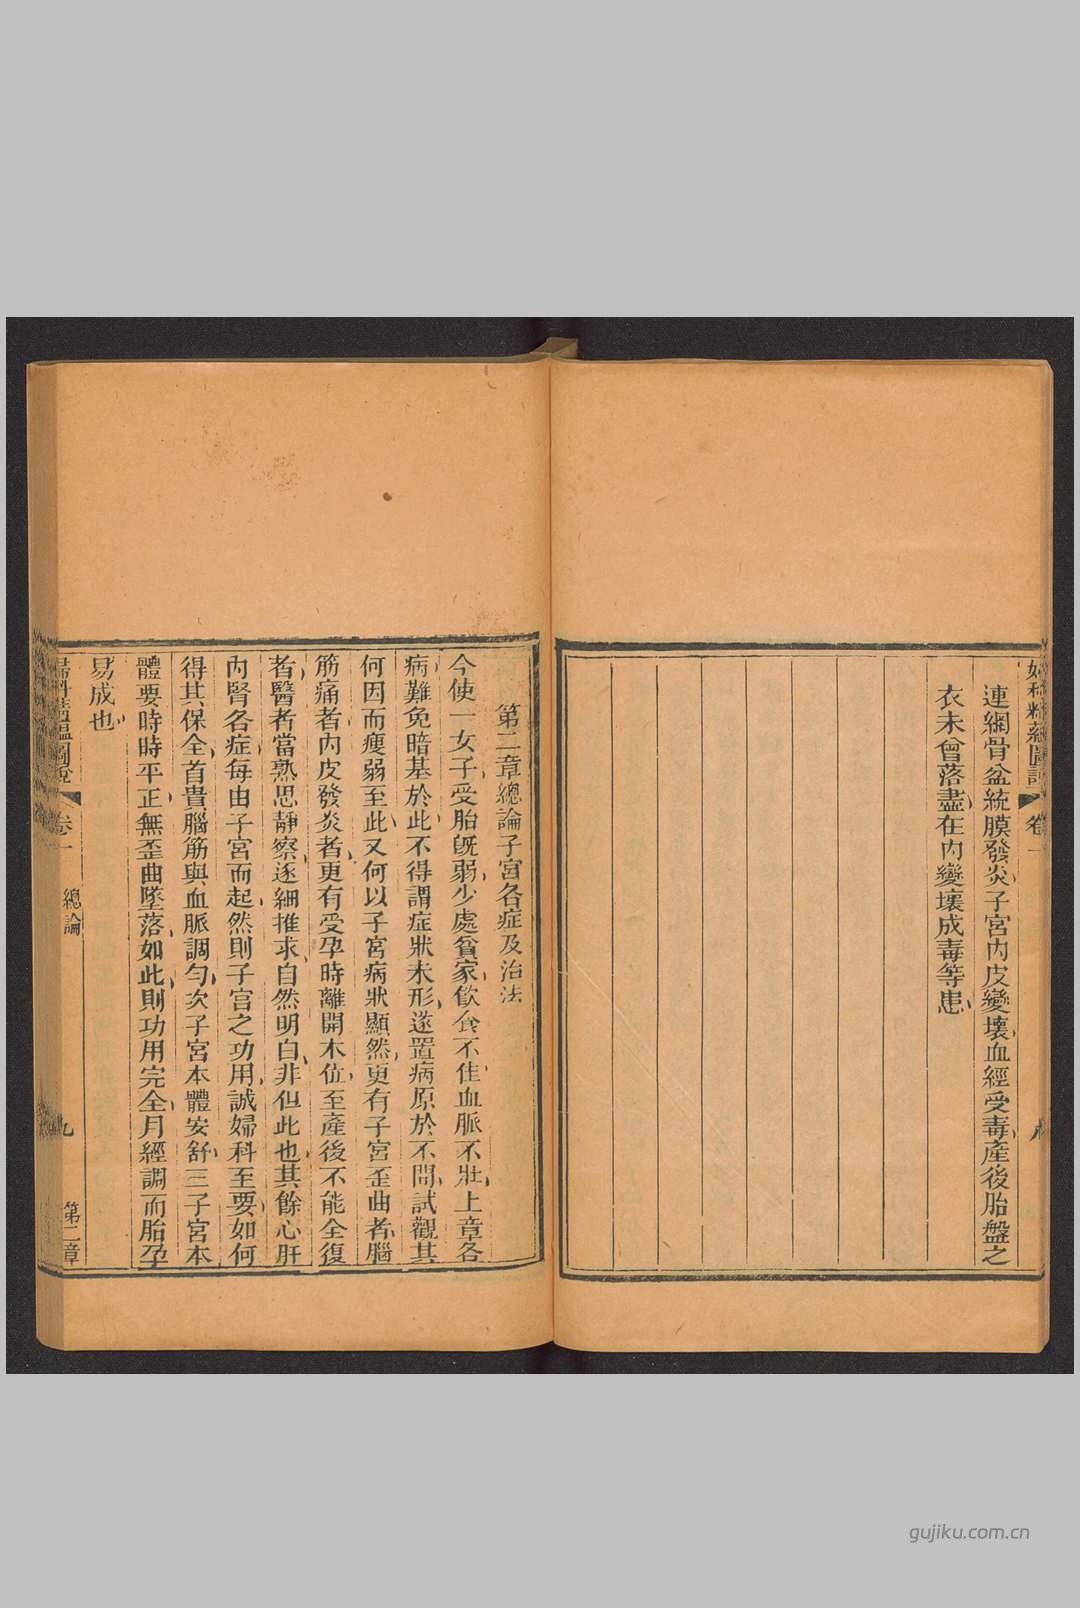 婦科精蘊圖說
卷一
連網骨盆統膜發炎子宮內皮變壞血經受毒產後胎盤之
衣未曾落盡在內變壞成毒等患
第二章總論子宮各症及治法
今使一女子受胎旣弱少處貧家飮食不佳血脈不壯上章各
病難免暗基於此不得謂症狀未形遂置病原於不問試觀其
何因而瘦弱至此又何以子宮病狀顯然更有子宮歪曲者腦
筋痛者內皮發炎者更有受孕時離開本位至產後不能全復
者醫者當熟思靜察逐細推求自然明白非但此也其餘心肝
內腎各症每由子宮而起然則子宮之功用誠婦科至要如何
得其保全首貴腦筋與血脈調勻次子宮本體安舒三子宮本
體要時時平正無歪曲墜落如此則功用完全月經調而胎孕
易成也
婦科精蘊圖說
卷一
總論
九
第二章
gujiku.com.cn